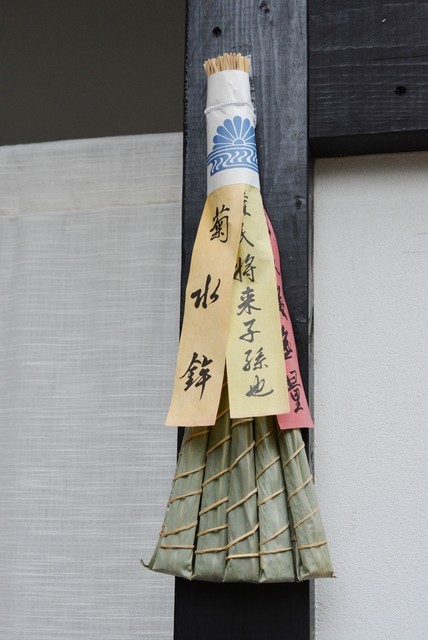 菊水鉾
民将来子孫也
量